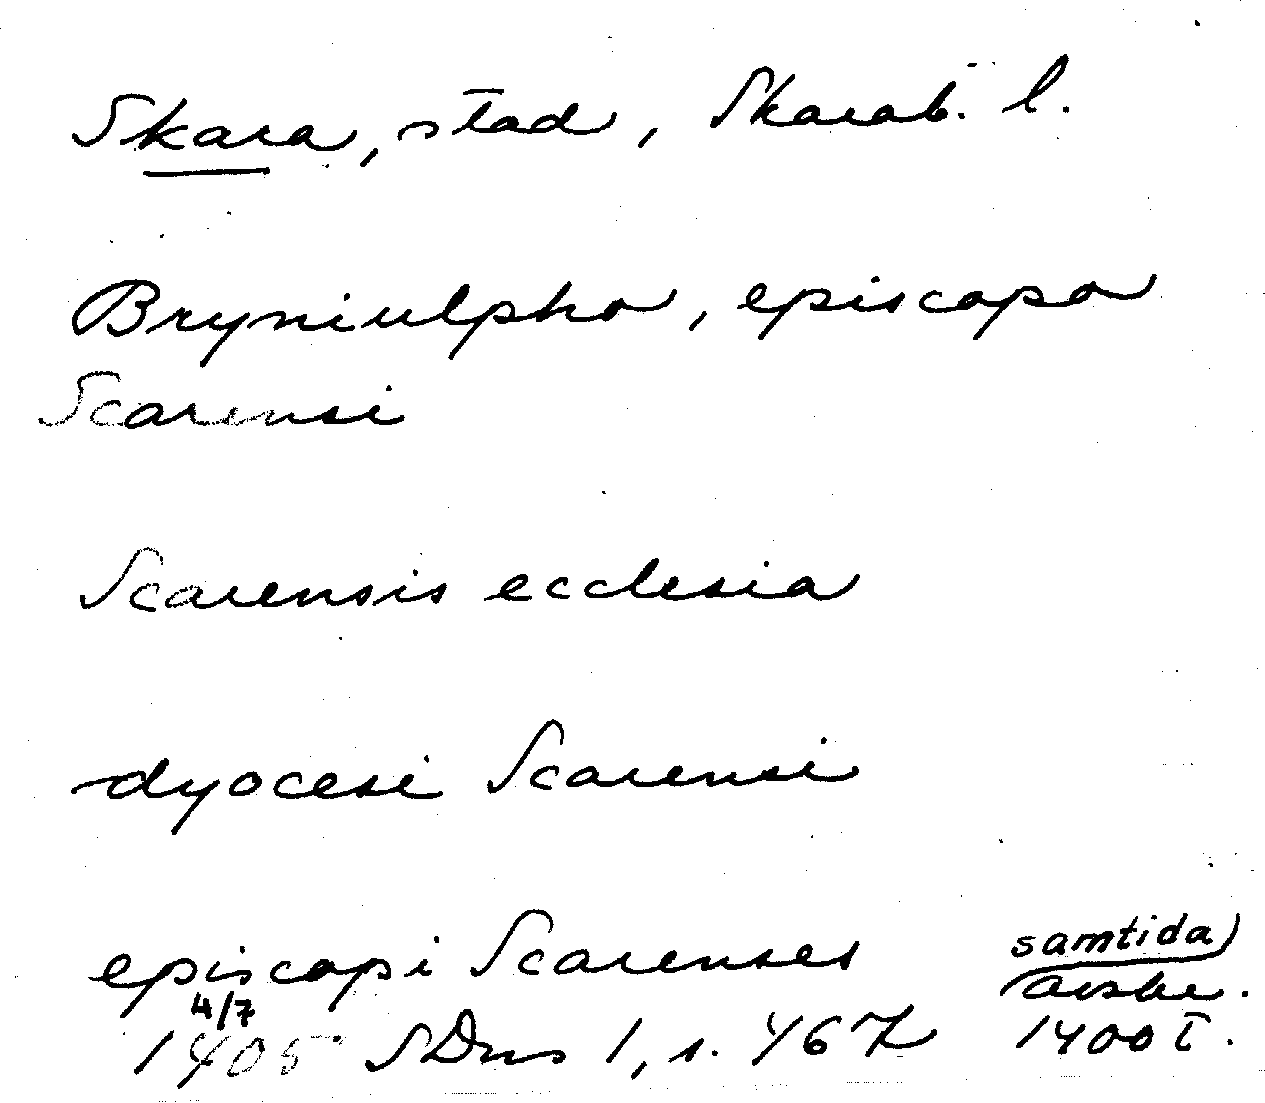 Skara, stad, Skarab. l.
Bryniulpho, episcopo
Scarensi
Scarensis ecclesia
dyocesi Scarensi
episcopi Scarenses
samtida
4/7
avskr.
1405 SDns 1, s. 467
1400 t.